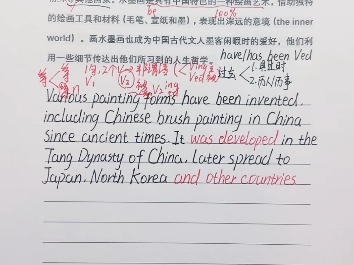 的绘画工具和材料(毛笔、宣纸和墨),表现出深远的意境(the inner
world)。画水墨画也成为中国古代文人墨客闲暇时的爱好,他们利
用一些细节传达出他们所习到的人生哲学。
have/has been Ved
Various painting forms have been invented,
including Chinese brush painting in China
since ancient times. It was developed in the
Tang Dynasty of China, later spread to
Japan, North Korea and other countries